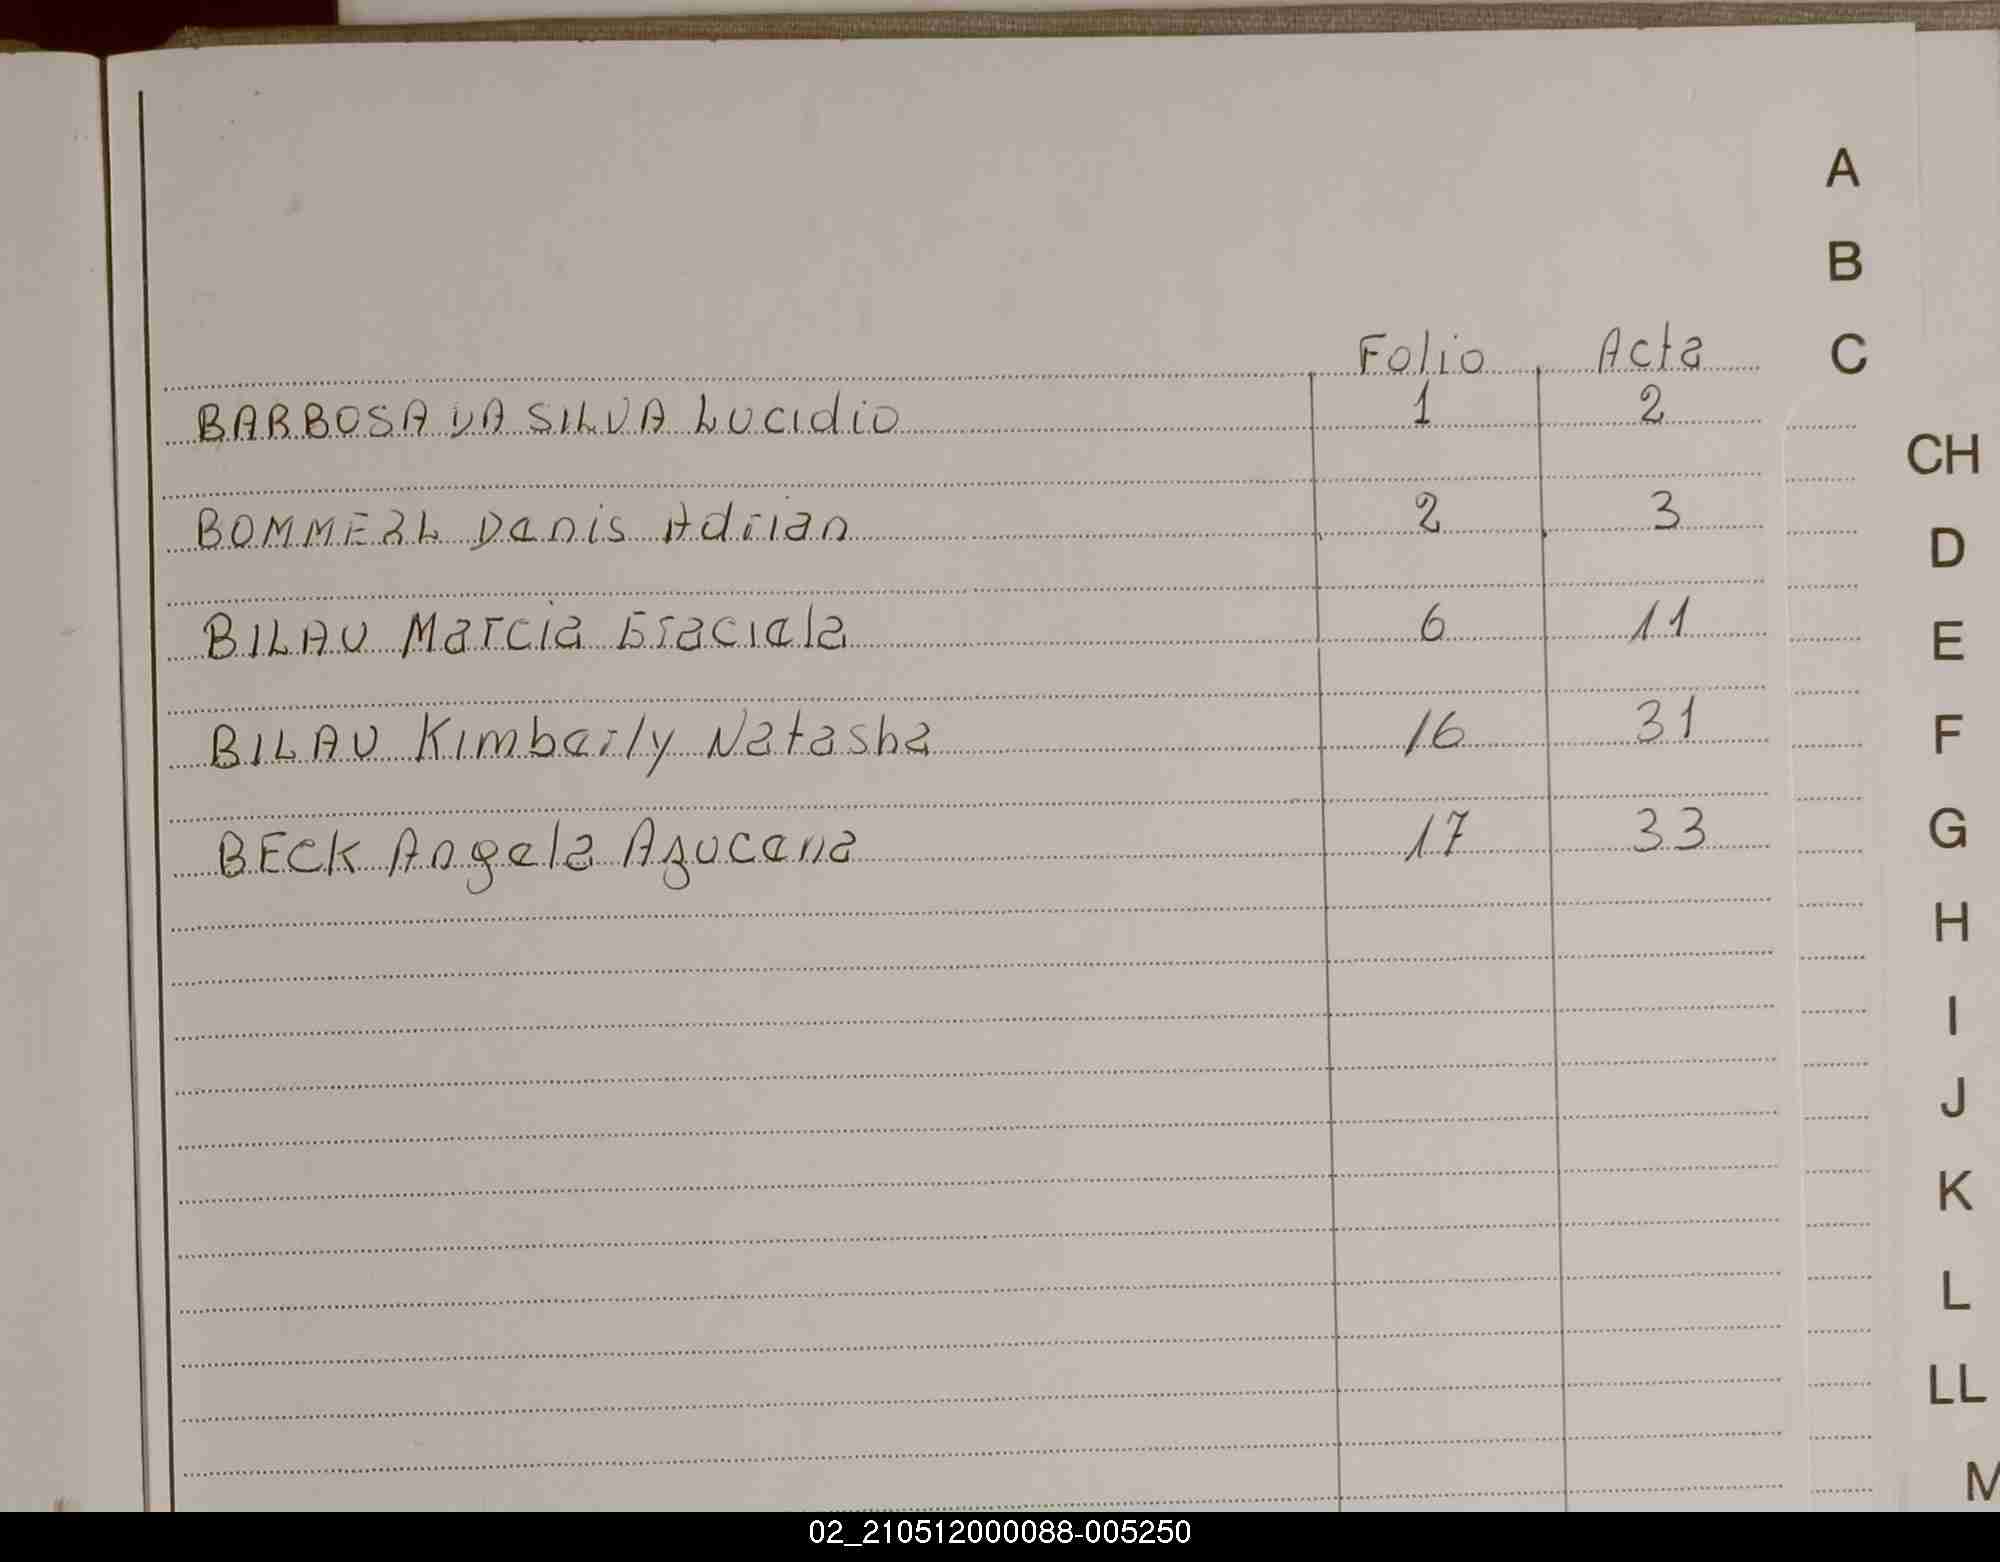 A
B
Folio Acta C
BARBOSA DA SILVA LUCIdio 1 2
CH
BOMMERL Denis Adrian 2 3
D
BILAU Marcia Graciela 6 11
E
BILAU Kimberly Natasha 16 31
F
BECK Angela Azucena 17 33
G
H
I
J
K
L
LL
M
02_210512000088-005250